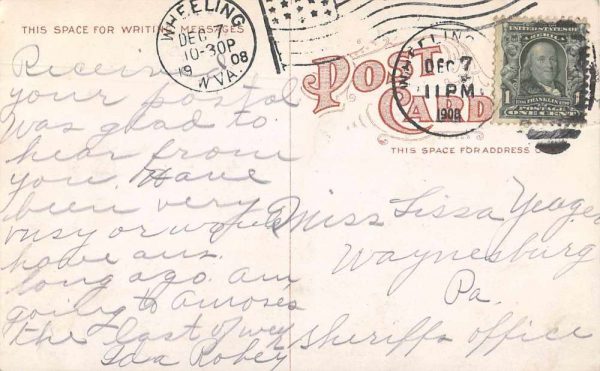 THIS SPACE FOR WRITING MESSAGES
WHEELING
DEC 7
10-30P
19 08
W.VA.
POST
CARD
WHEELING
DEC 7
11 PM
1908
UNITED STATES OF AMERICA
1
FRANKLIN
POSTAGE
ONE CENT
THIS SPACE FOR ADDRESS
Received
your postal
was glad to
hear from
you. Have
been very
busy or would
have ans.
long ago. am
going to
the last of week
Ida Robey
Miss Lissa Yeager
Waynesburg
Pa.
Sheriffs office